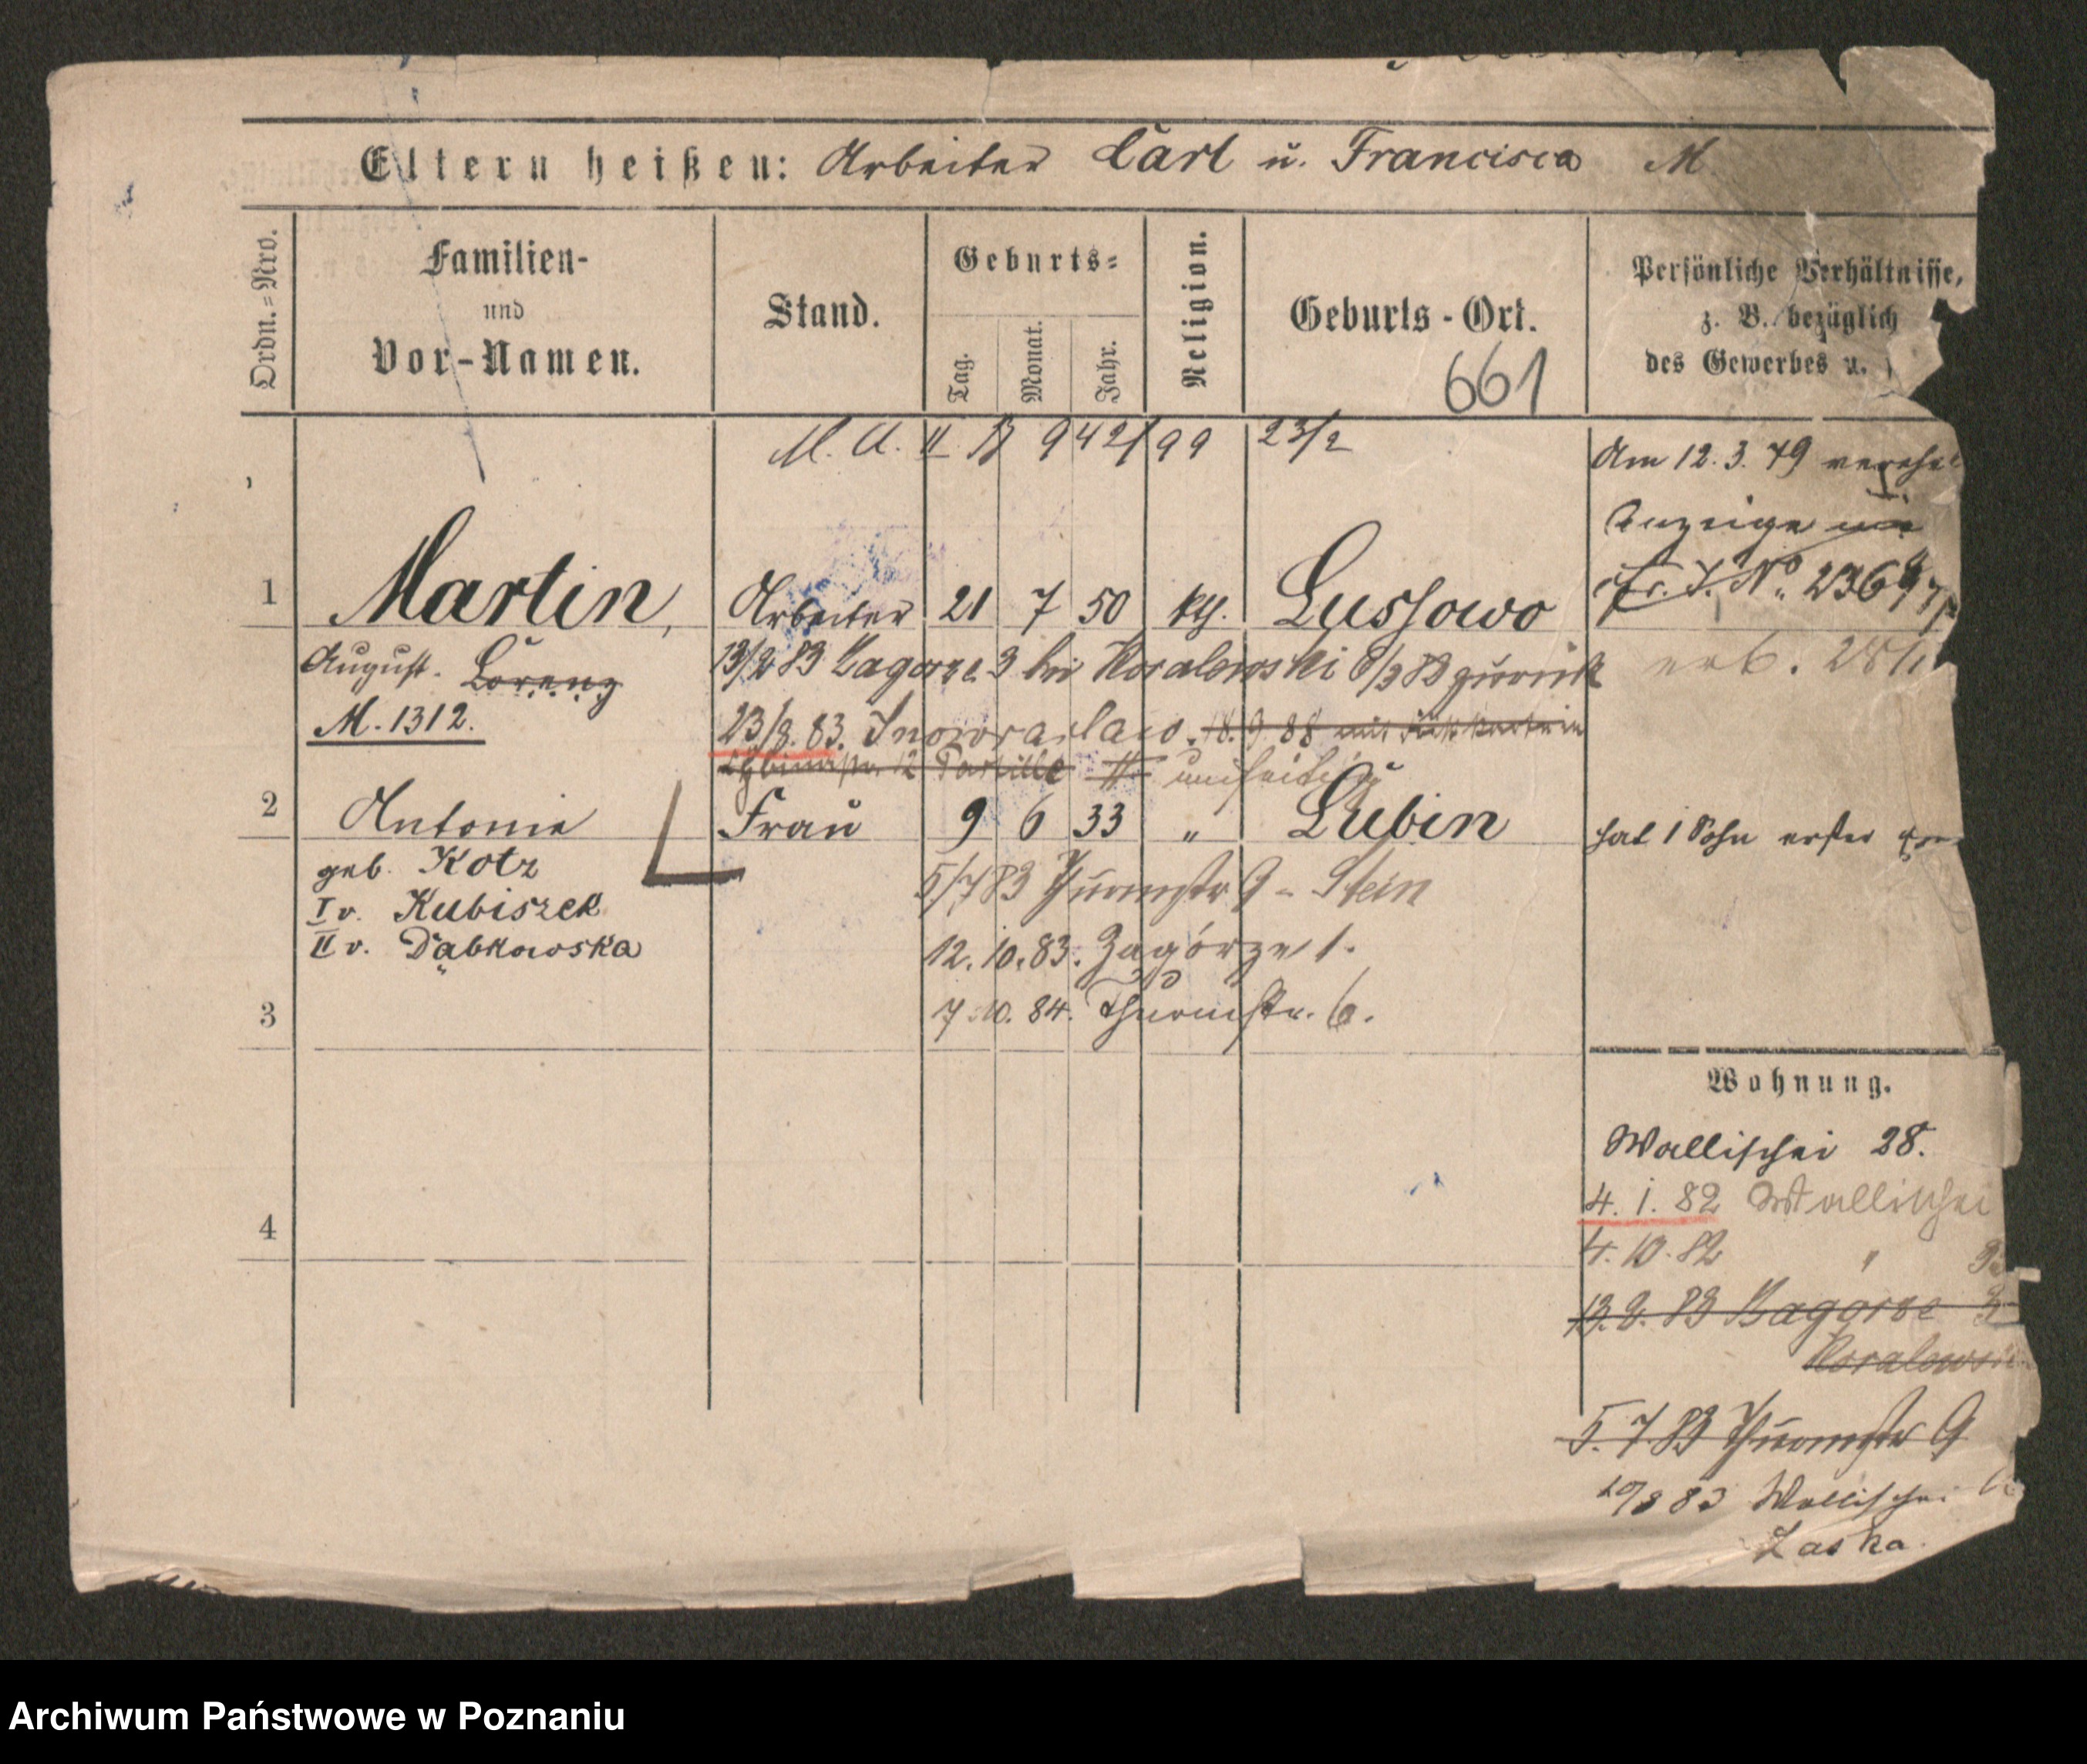 Eltern heißen: Arbeiter Carl u. Francisca M.
Ordn.=Nro.
Familien-
und
Vor-Namen.
Stand.
Geburts=
Tag.
Monat.
Jahr.
Religion.
Geburts-Ort.
661
Persönliche Verhältnisse,
z. B. bezüglich
des Gewerbes u.
M. A. II 942/99 23/2
Am 12. 3. 79
Anzeige
J. No. 236
1 Martin, Arbeiter 21 7 50 kth. Lussowo
August. Lorenz
M. 1312.
13/2 83 Zagorze 3 bei Koralewski 8/3 83 zurück
23/8. 83. Inowrazlaw. 18. 9. 88 mit
2 Antonie Frau 9 6 33 " Lubin
hat 1 Sohn erster
geb. Kotz
I v. Kubiszek
II v. Dąbkowska
5/7 83 Thurmstr 9 - Stein
12. 10. 83. Zagórze 1.
7. 10. 84. Thurmstr. 6.
3
Wohnung.
Wallischei 28.
4. 1. 82 Wallischei
4. 10. 82 "
4
13. 2. 83 Zagorze 3
Koralewski
5. 7. 83 Thurmstr 9
83 Wallischei
Laska.
Archiwum Państwowe w Poznaniu